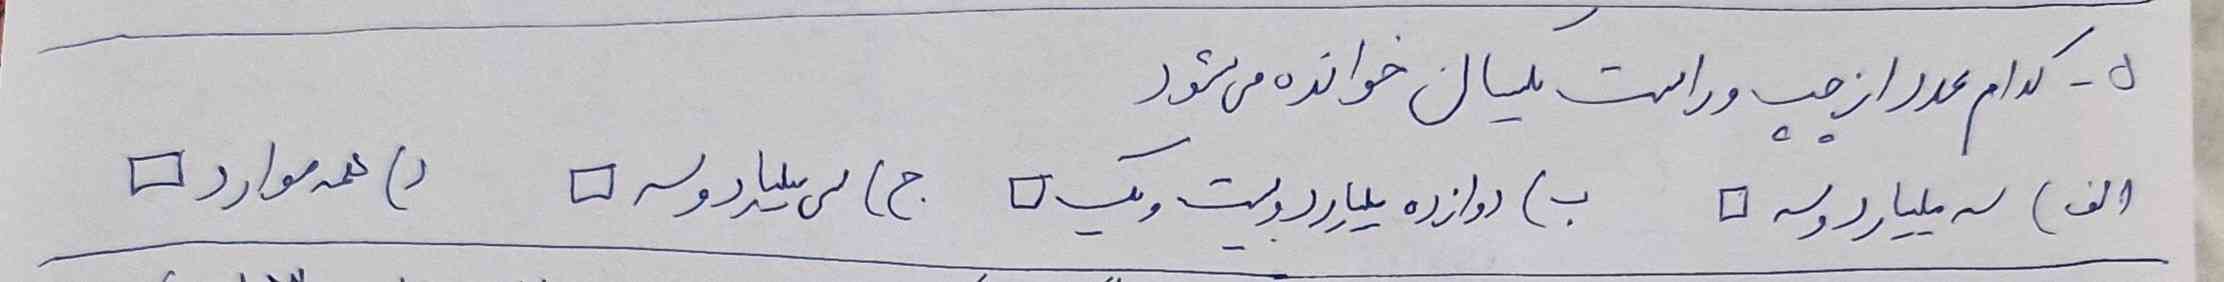 ۵ - کدام عدد از چپ و راست یکسان خوانده می‌شود
الف) سه میلیارد و سه □ ب) دوازده میلیارد و بیست و یک □ ج) سی میلیارد و سه □ د) همه موارد □